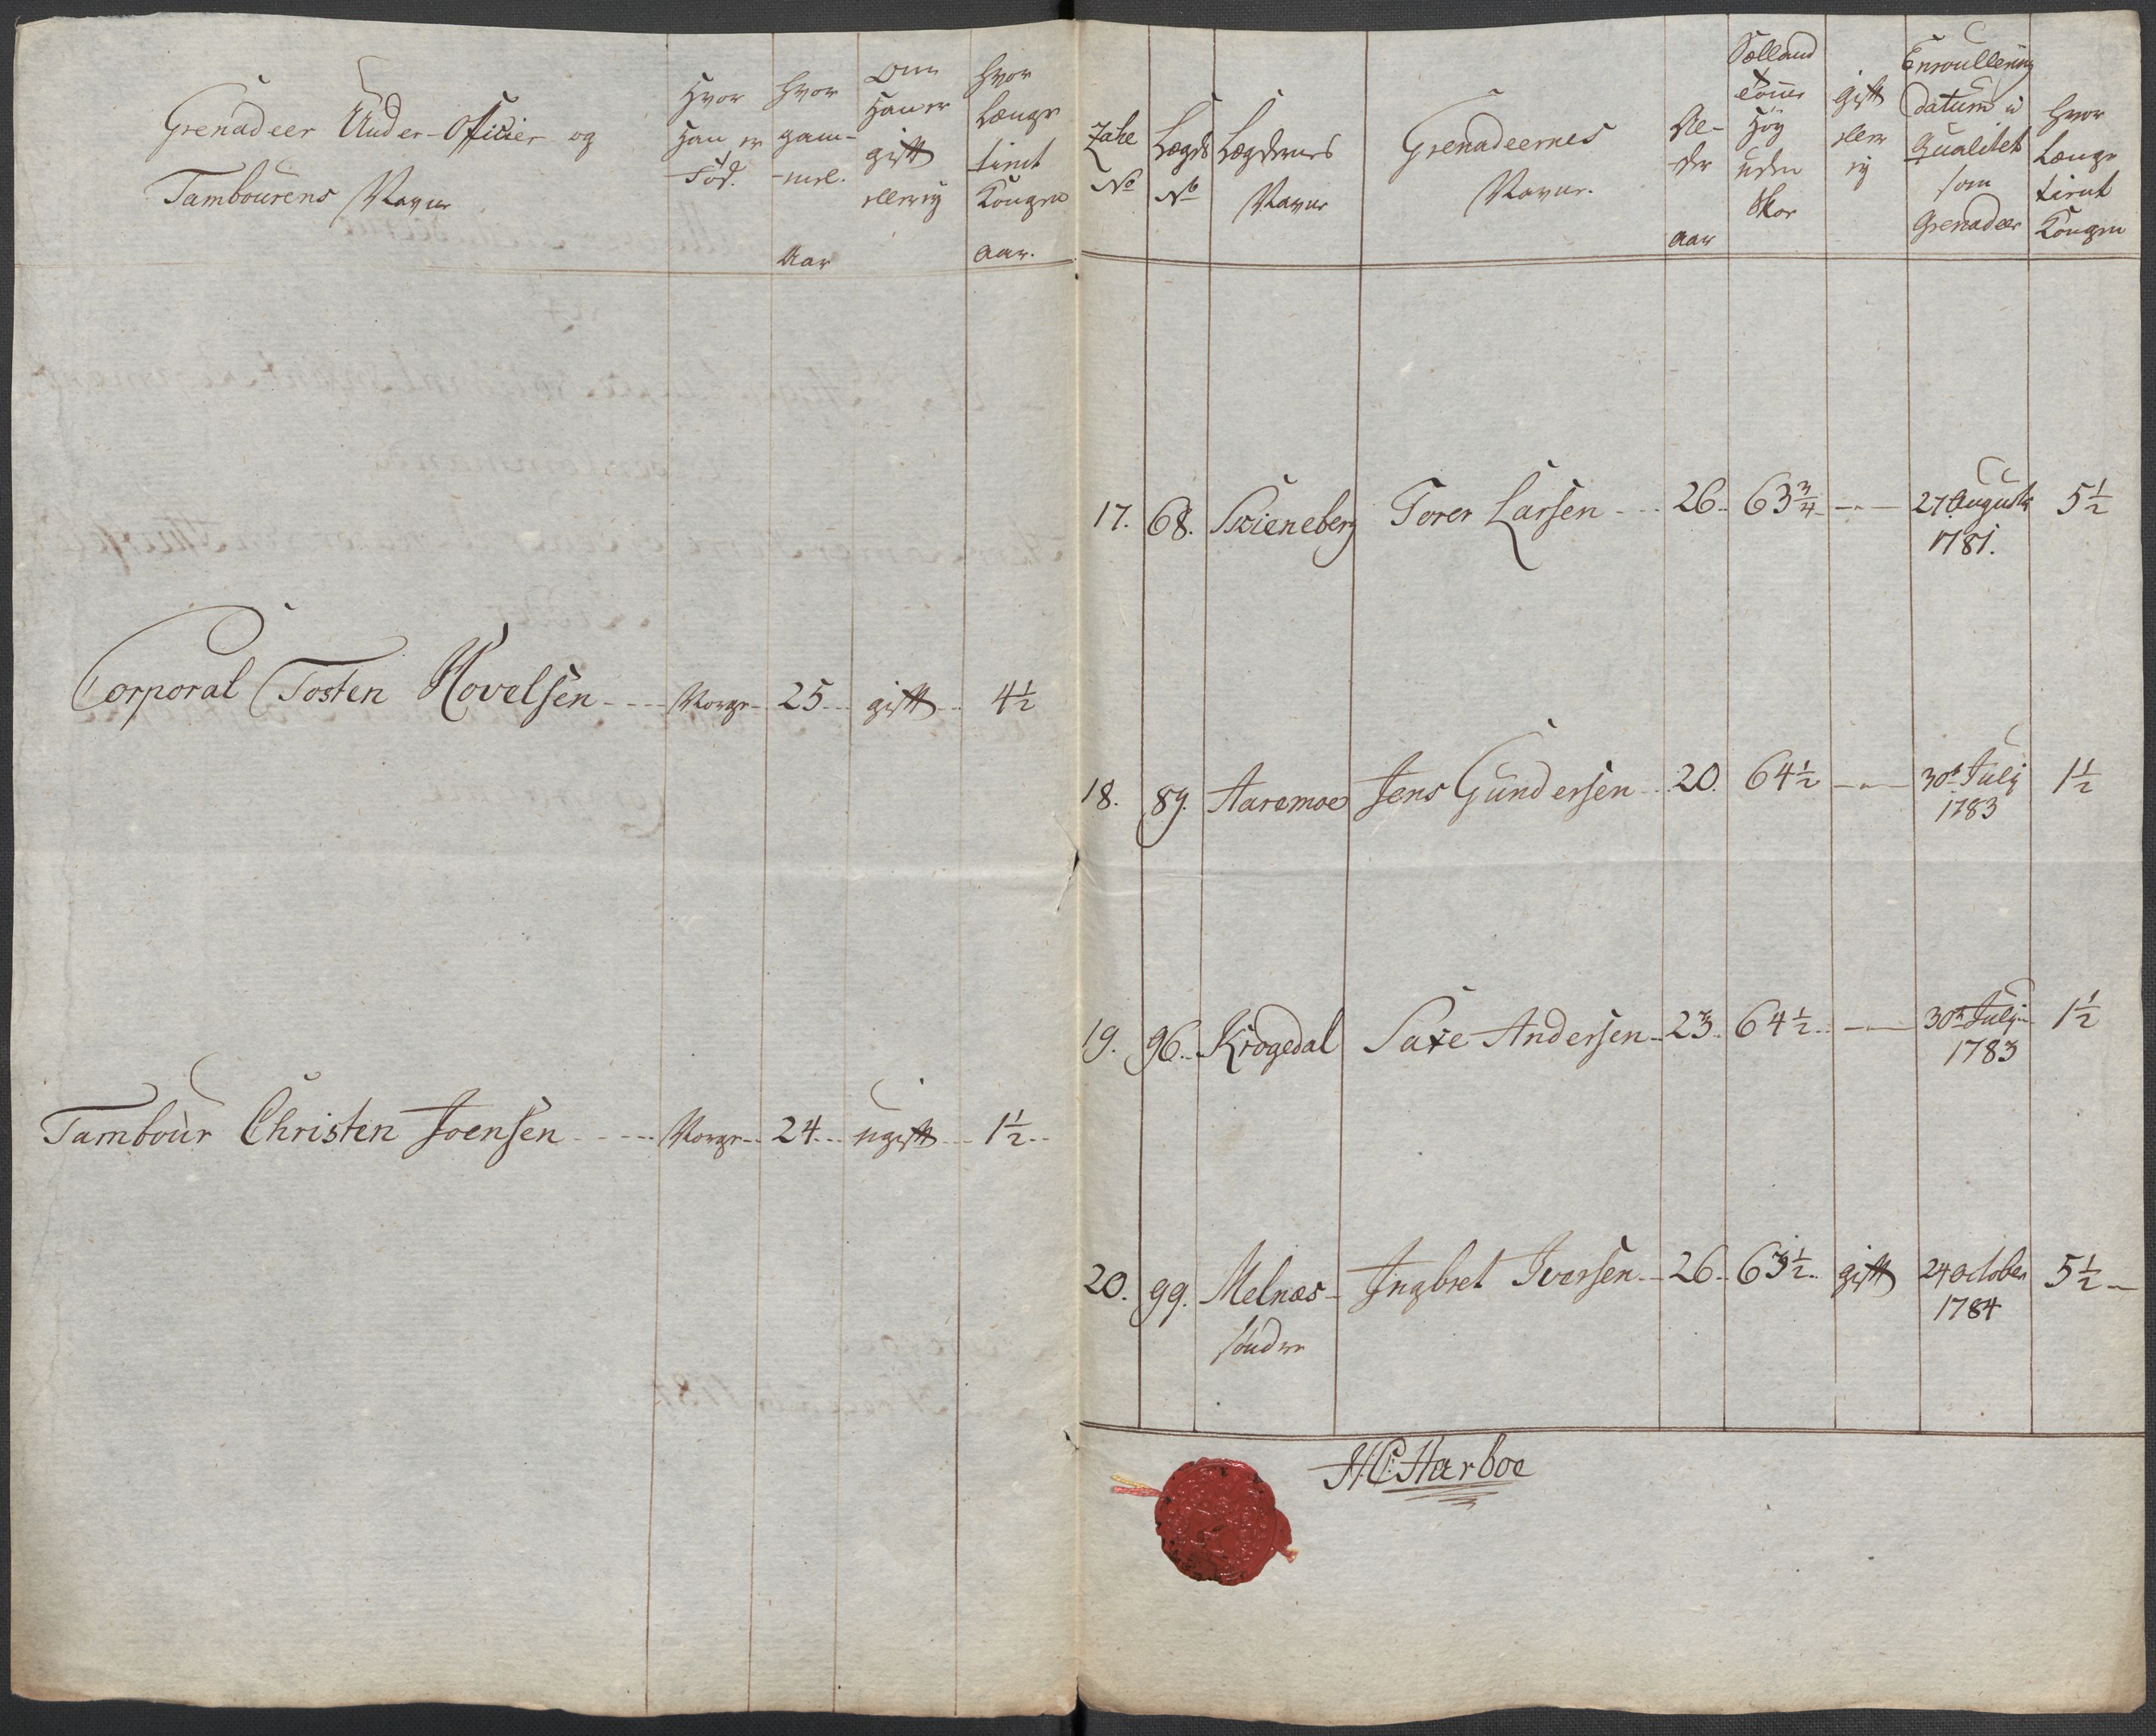 Grenadeer Under-Officier og
Tambourens Navne
Hvor
Han er
Fød.
Hvor
gam-
mel.
Aar
Om
Han er
gift
eller ey
Hvor
længe
tient
Kongen
Aar.
Corporal Tosten Hovelsen - - - - Norge - 25 - - gift - - 4½
Tambour Christen Joensen - - - - - Norge - - 24 - - ugift - - 1½ - -
Zahl
No
Lægds
No
Lægdernes
Navne
Grenadeernes
Navne.
Al-
der
Aar
Sælland
Tomer
Høy
uden
Skoe
gift
eller
ey
Enroullerings
datum i
Qualitet
som
Grenadeer
Hvor
længe
tient
Kongen
17. 68. Skieneberg Torer Larsen - - - 26 - 63¾ - - - 27 Augusti 5½
1781.
18. 89. Aaremoe Jens Gundersen - - 20. 64½ - - - 30te July 1½
1783
19. 96. Krogedal Saxe Andersen - 23. 64½ - - - - 30te July 1½
1783
20. 99. Melnæs - Ingbret Iversen - - 26 - 63½ - gift 24 October 5½ -
søndre 1784
H C: Harboe